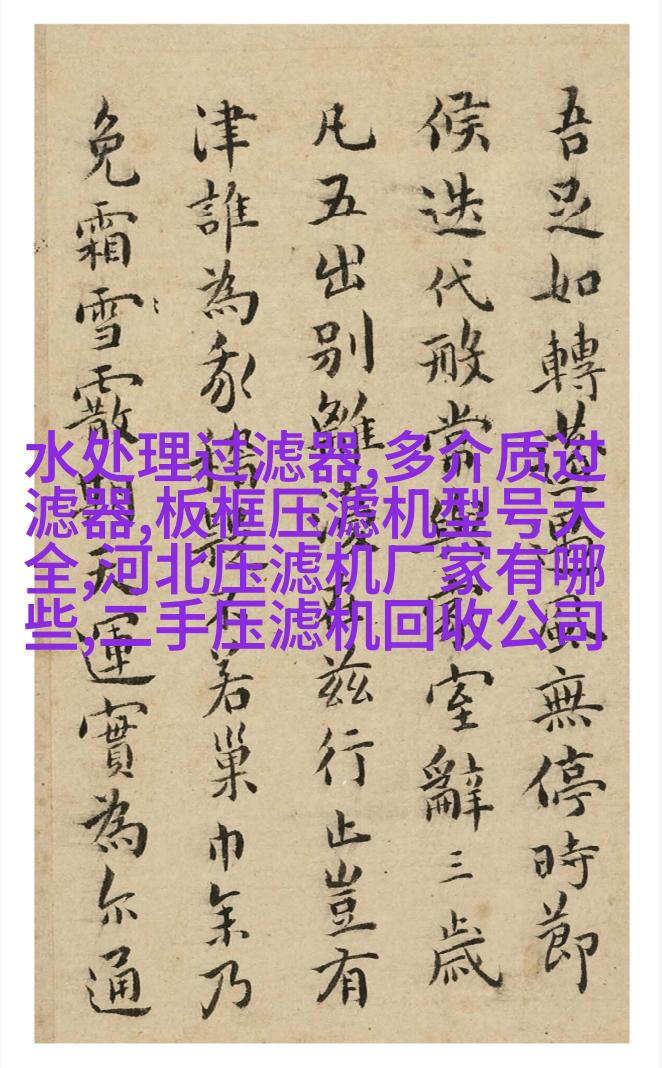 水处理过滤器,多介质过
滤器,板框压滤机型号大
全,河北压滤机厂家有哪
些,二手压滤机回收公司
吾足如轉風無停時節
候迭代常室辭三歲
凡五出別雖茲行止豈有
津誰為不若巢巾乃
免霜雪霰天運實為尔通